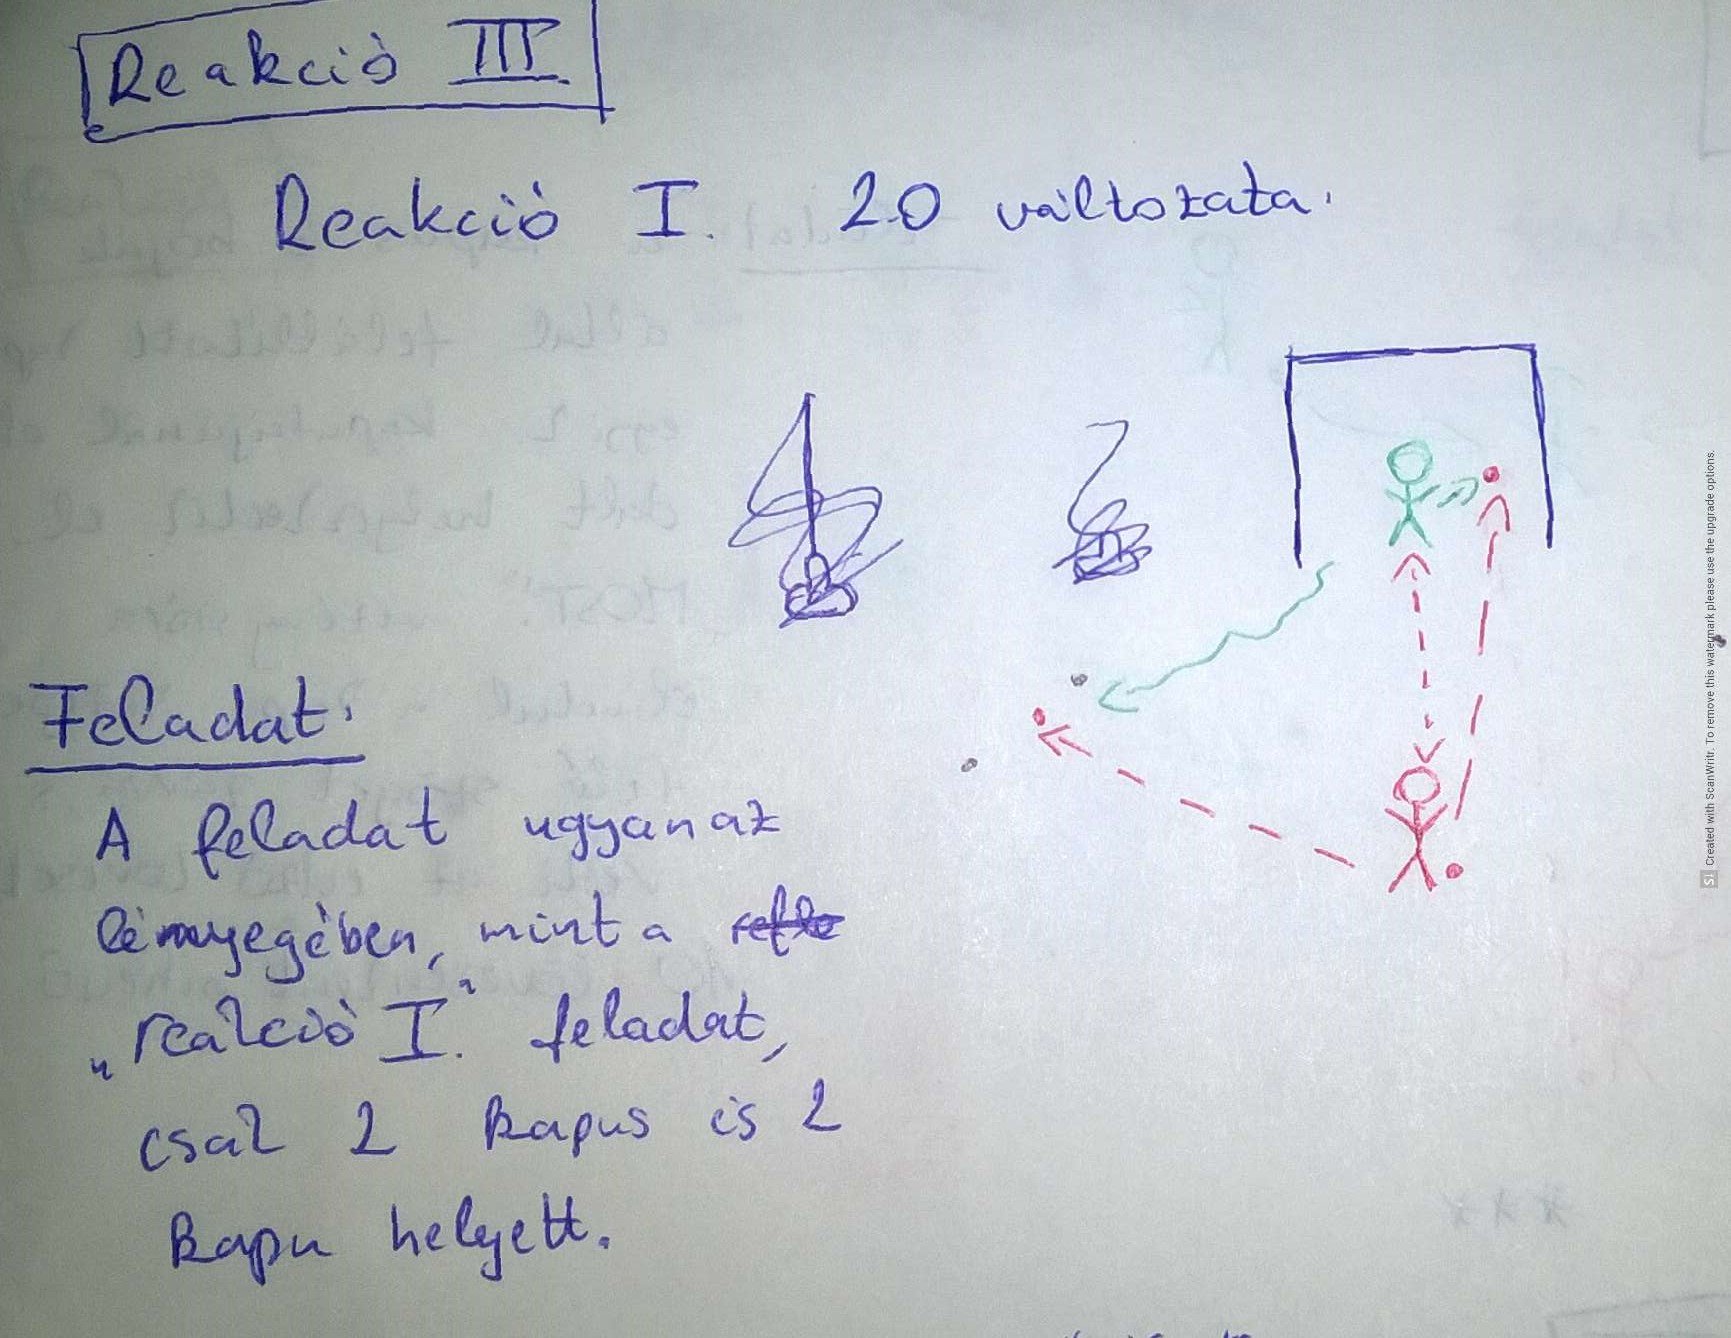 Reakció III.
Reakció I. 2.0 változata.
Feladat:
A feladat ugyanaz
lényegében, mint a
„reakció I." feladat,
csak 2 kapus és 2
kapu helyett.
Created with ScanWritr. To remove this watermark please use the upgrade options.